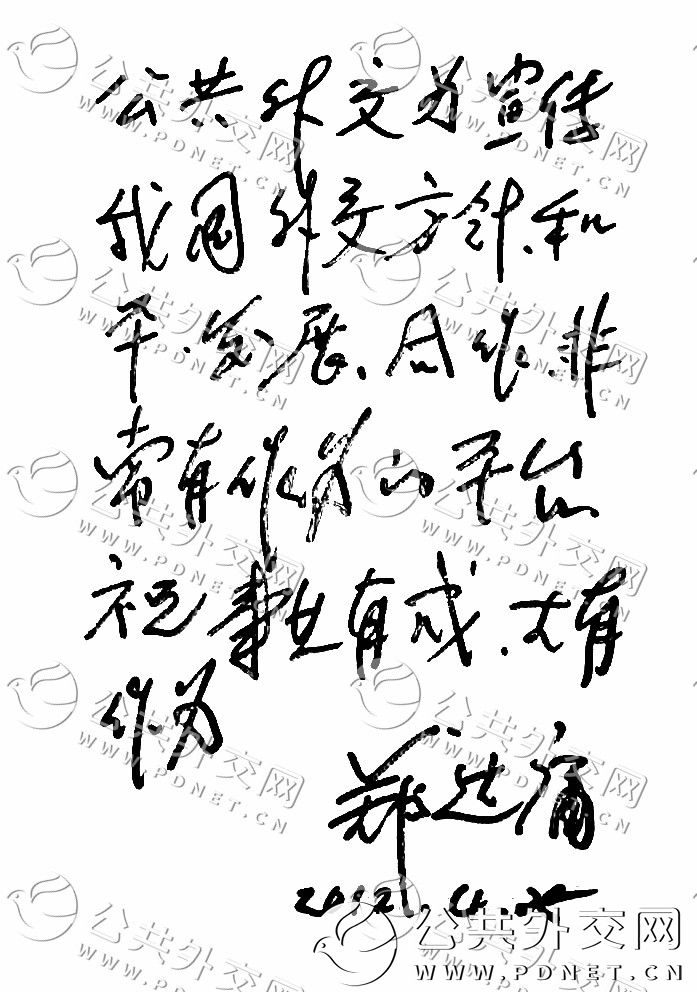 公共外交为宣传
我国外交方针、和
平、发展、合作、非
常有作为的平台
祝事业有成、大有
作为
郑达庸
2012.
公共外交网
WWW.PDNET.CN